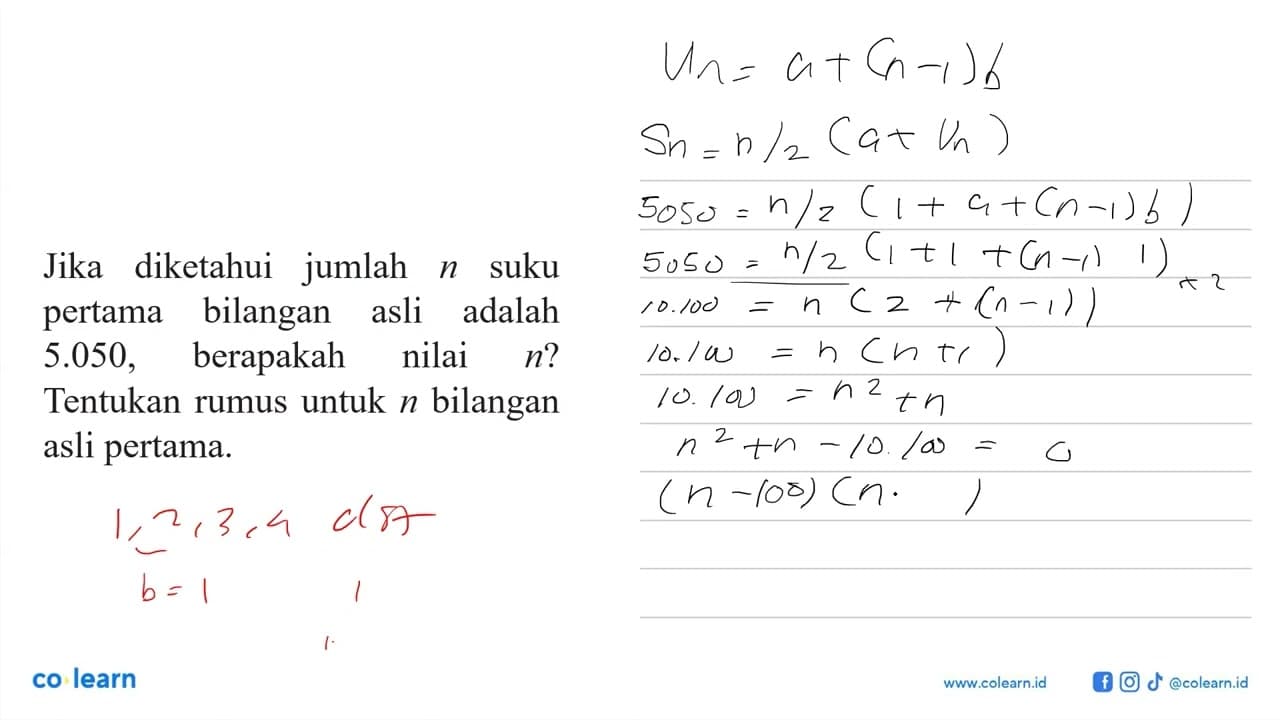 Jika diketahui jumlah n suku
pertama bilangan asli adalah
5.050, berapakah nilai n?
Tentukan rumus untuk n bilangan
asli pertama.
1, 2, 3, 4 dst
b = 1 1
1.
Un = a + (n - 1) b
Sn = n/2 (a + Un)
5050 = n/2 (1 + a + (n - 1) b)
5050 = n/2 (1 + 1 + (n - 1) 1) × 2
10.100 = n (2 + (n - 1))
10.100 = n (n + 1)
10.100 = n² + n
n² + n - 10.100 = 0
(n - 100) (n. )
co learn
www.colearn.id
@colearn.id